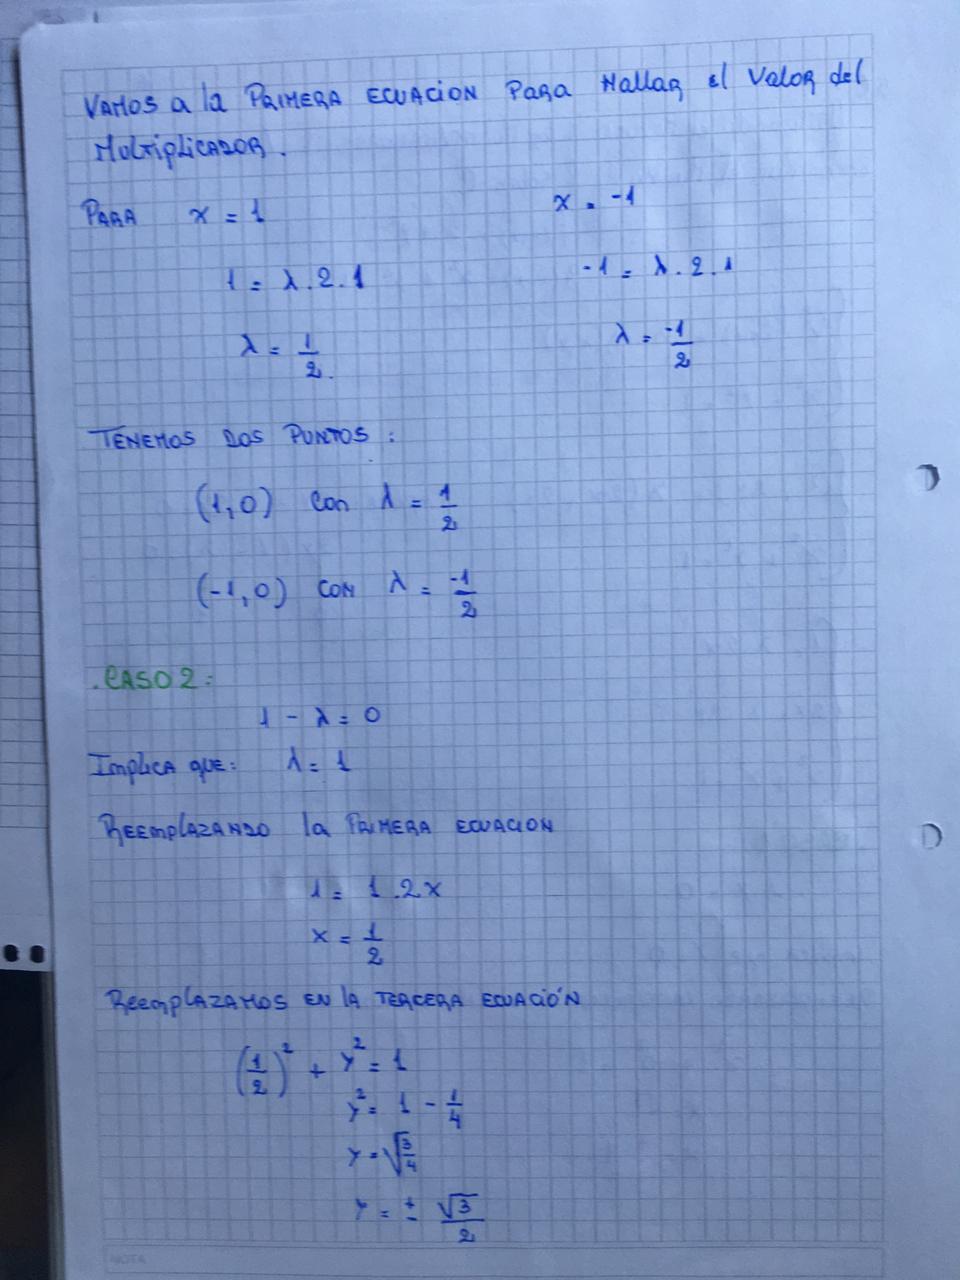 VAMOS a la PRIMERA ECUACION PARA HALLAR el Valor del
MULTIPLICADOR.
PARA x = 1 x = -1
1 = λ.2.1 -1 = λ.2.1
λ = 1/2. λ = -1/2
TENEMOS DOS PUNTOS:
(1,0) CON λ = 1/2
(-1,0) CON λ = -1/2
.CASO 2:
1 - λ = 0
IMPLICA QUE: λ = 1
REEMPLAZANDO la PRIMERA ECUACION
1 = 1.2x
x = 1/2
REEMPLAZAMOS EN la TERCERA ECUACIÓN
(1/2)² + y² = 1
y² = 1 - 1/4
y = √3/4
y = ± √3/2
NOTA